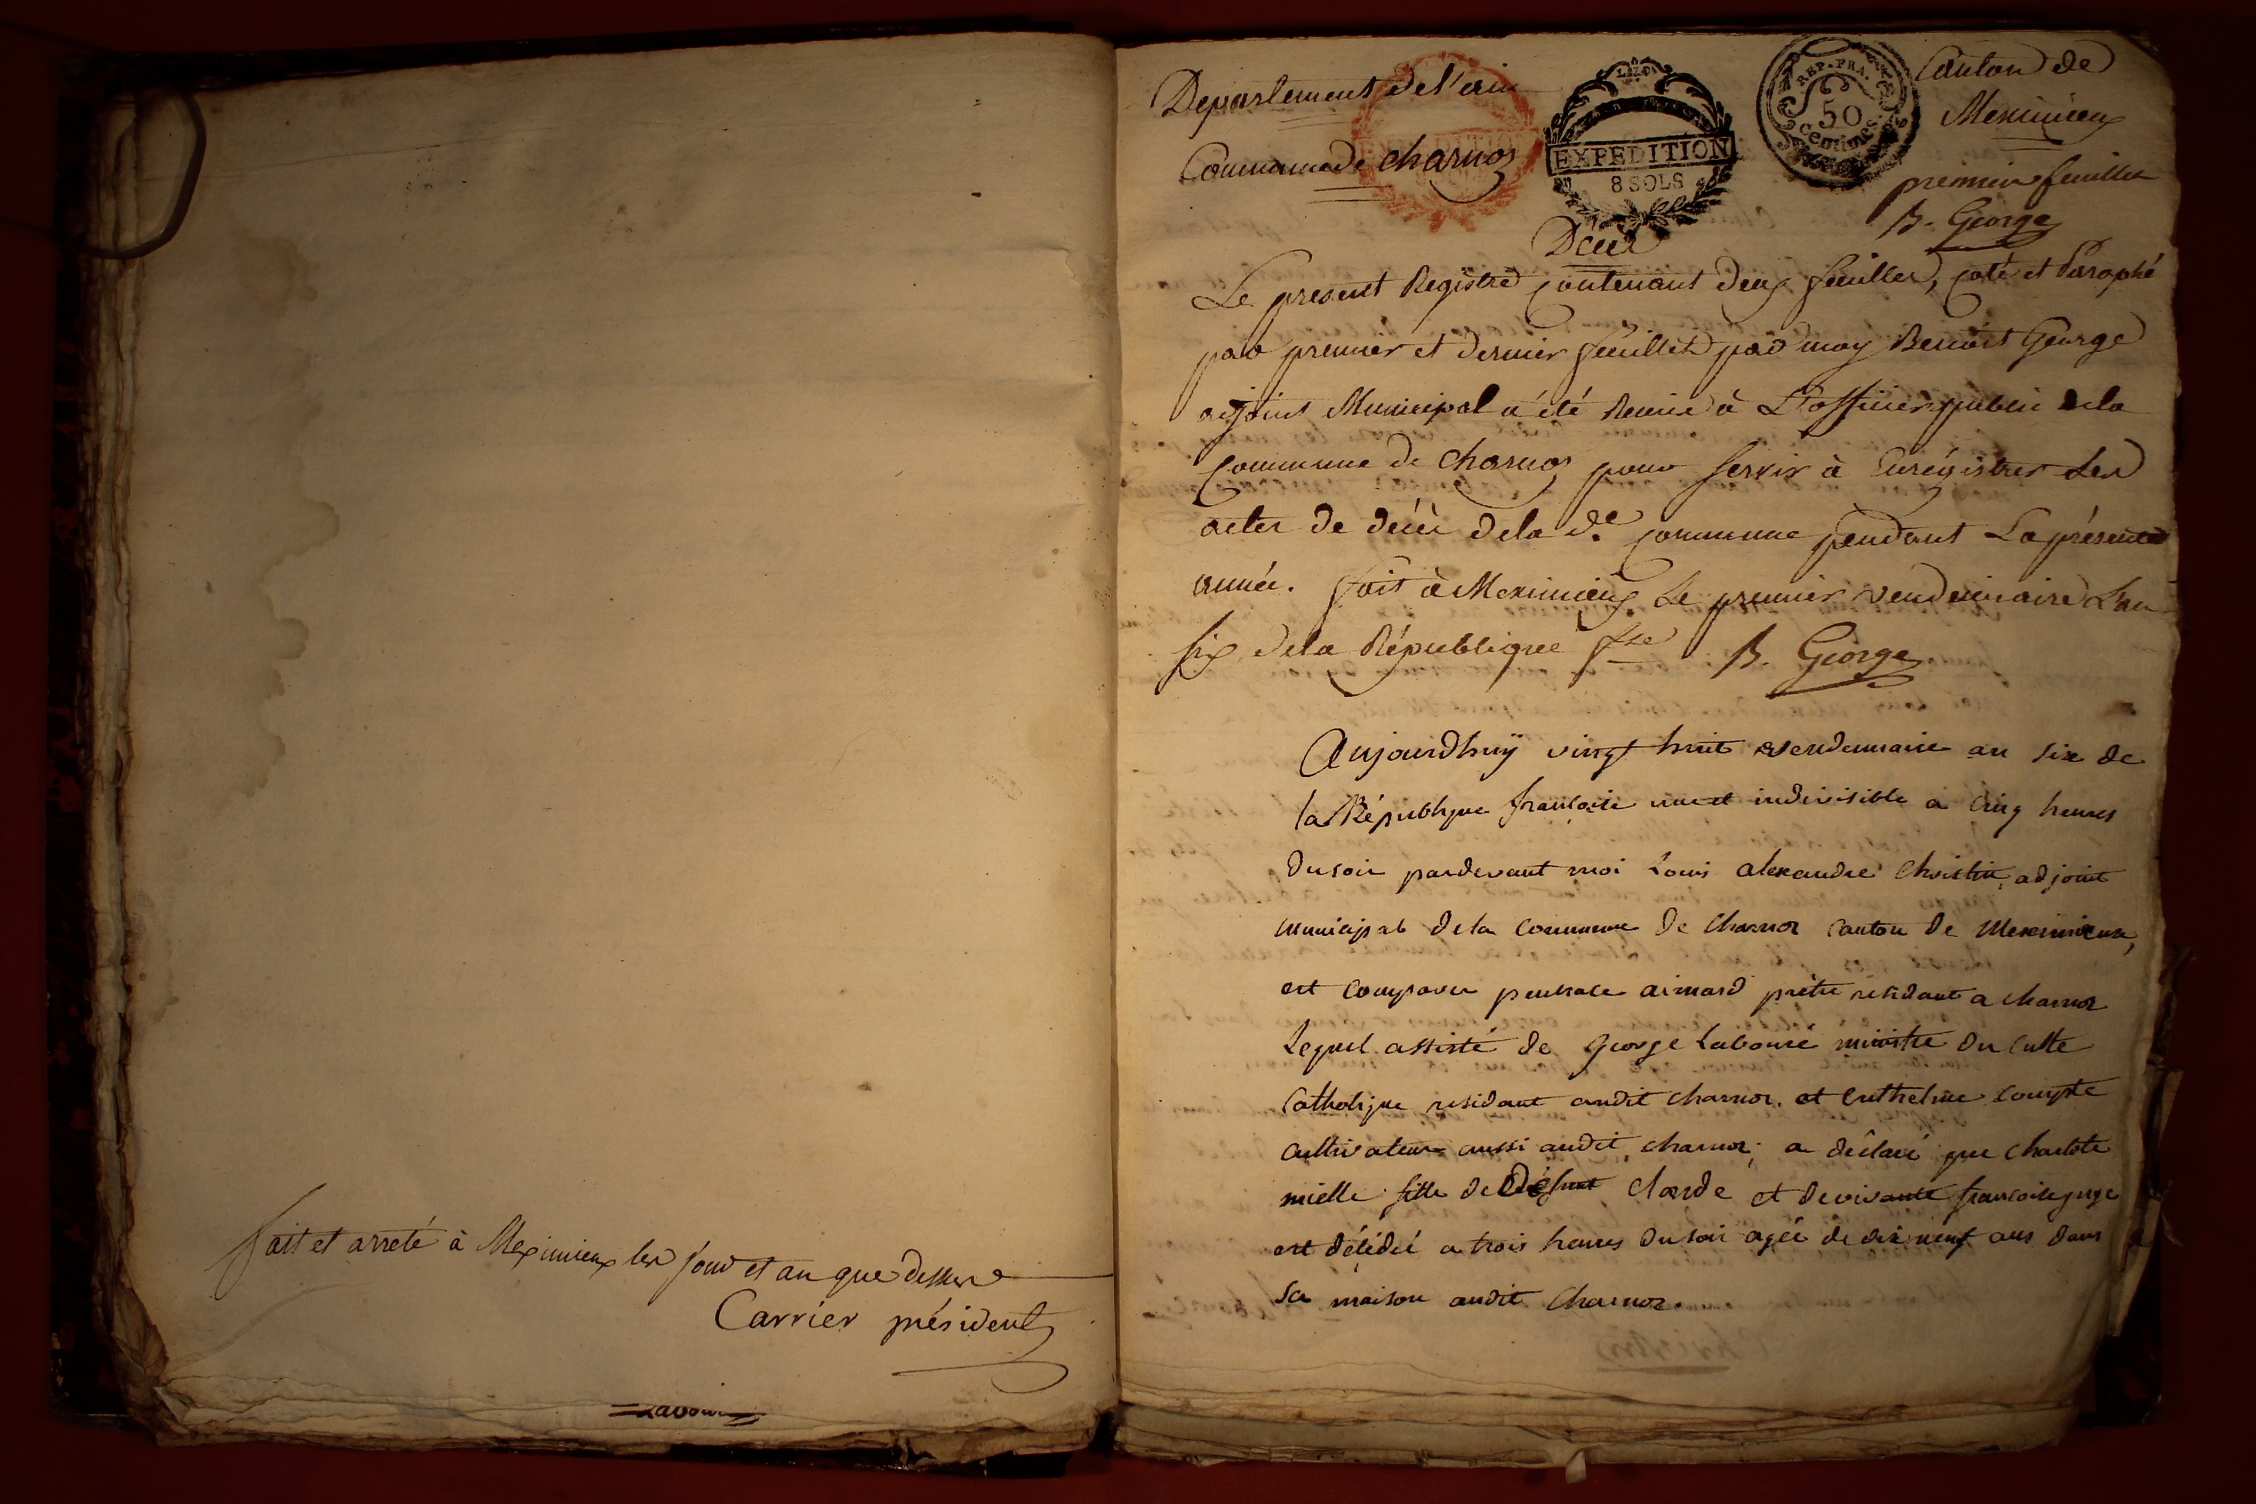 fait et arreté à Meximieux les jour et an que dessus
Carrier président
Departement de l'ain
Commune de charnoz
EXPEDITION
8 SOLS
REP. FRA.
50
centimes
Canton de
Meximieux
premier feuillet
B. George
Décès
Le present Registre contenant deux feuilles, coté et Paraphé
par premier et dernier feuillet par moy Benoit George
adjoint Municipal a été Remis à L'officier public dela
Commune de Charnoz pour servir à Enrégistrer Les
actes de décès dela de. commune pendant La présente
année. fait à Meximieux Le premier vendemiaire L'an
six dela République fse B. George
Aujourdhuÿ vingt huit vendemiaire an six de
la République francoise une et indivisible a cinq heures
du soir pardevant moi Louis alexandre Christin, adjoint
municipal dela commune de charnoz canton de Meximieux,
est comparu aimard prêtre residant a charnoz
Lequel assisté de george Labouré ministre du culte
Catholique residant audit charnoz. et compte
cultivateur aussi audit charnoz, a déclaré que charlote
mielle fille de Défunt claude et de vivante francoise juge
est décédée a trois heures du soir agée de dix neuf ans dans
sa maison audit charnoz.